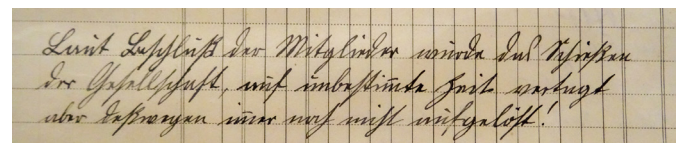 Laut Beschluß der Mitglieder wurde das Schießen
der Gesellschaft, auf unbestimmte Zeit vertagt
aber deßwegen immer noch nicht aufgelöst!